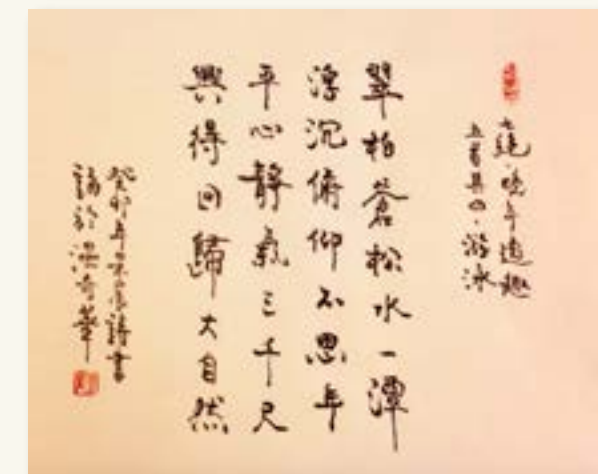 七绝·晚年逸趣
五首其四·游泳
翠柏蒼松水一潭
浮沉俯仰不思年
平心靜氣三千尺
興得回歸大自然
癸卯年 詩書
於